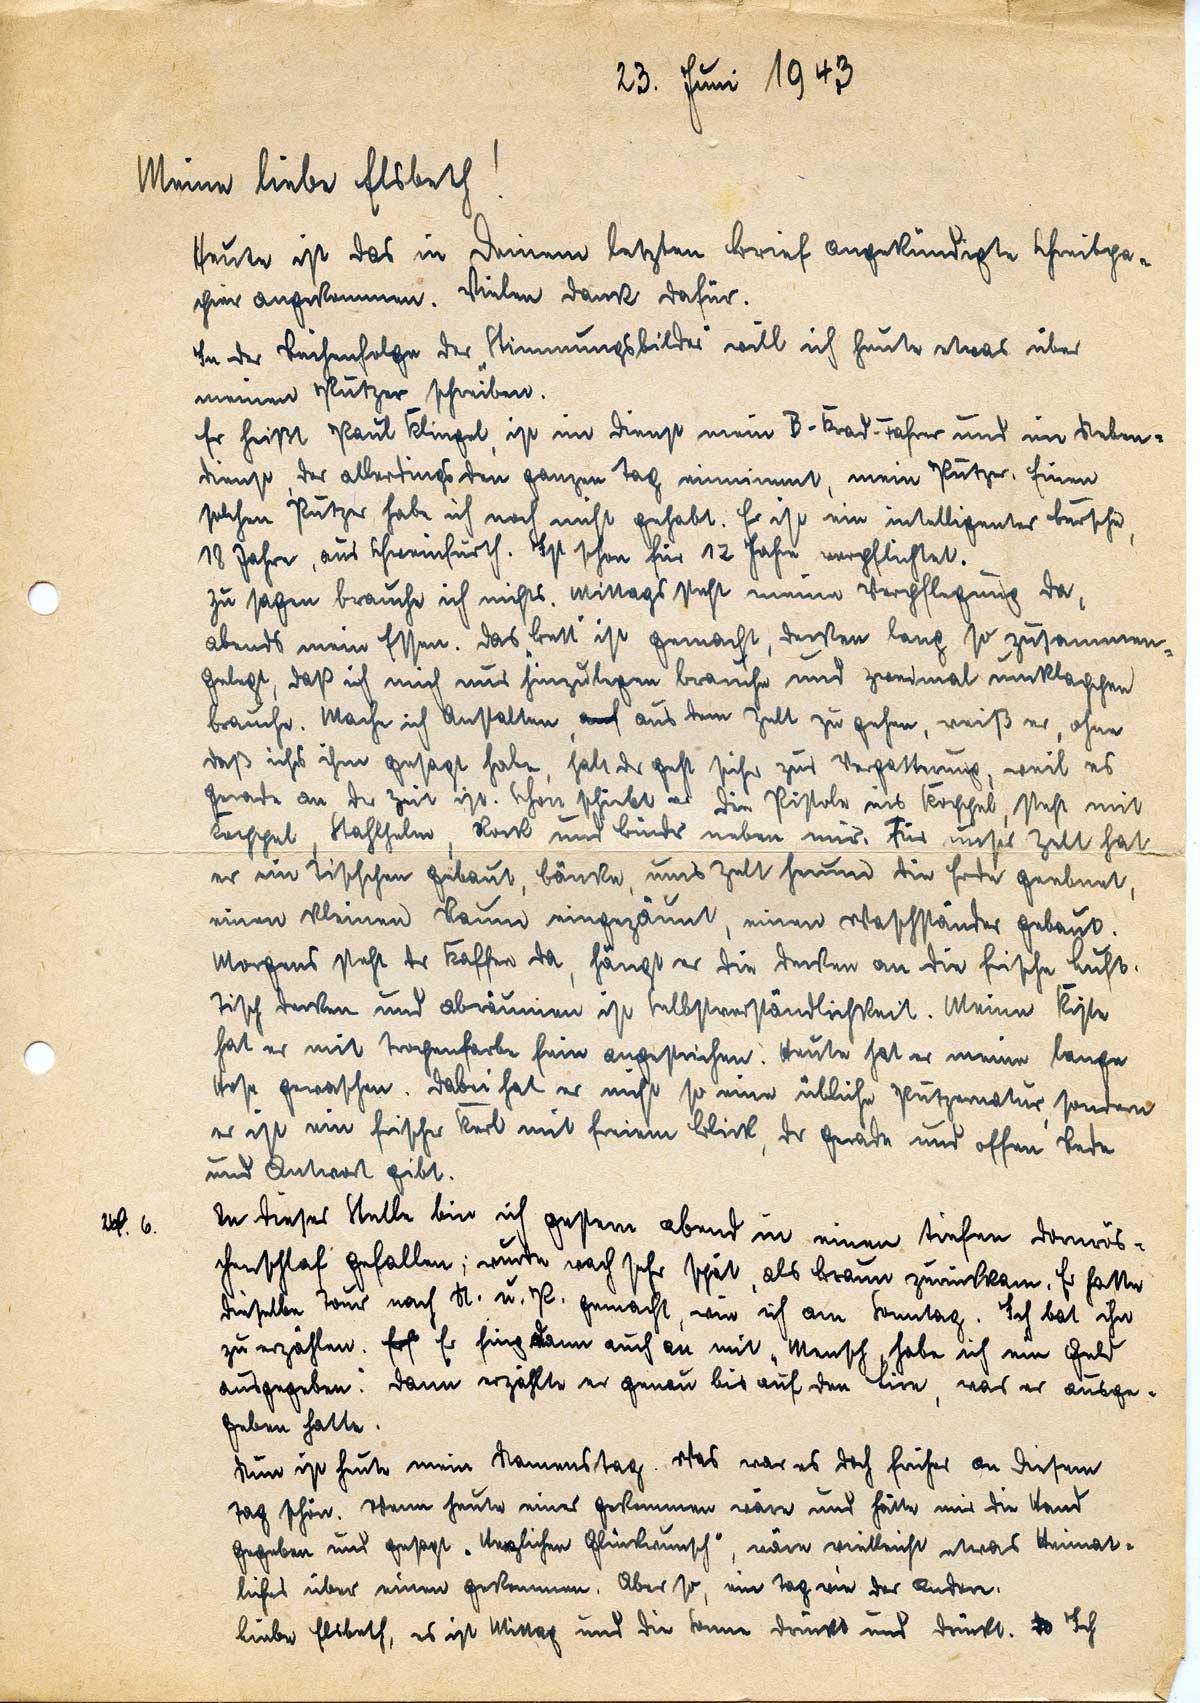 23. Juni 1943
Meine liebe Elsbeth!
Heute ist das in Deinem letzten Brief angekündigte Schreibpa-
pier angekommen. Vielen Dank dafür.
In der Reihenfolge der „Stimmungsbilder" will ich heute etwas über
meinen Putzer schreiben.
Er heißt Paul Klingel, ist im Dienst mein B-Krad-Fahrer und im Neben-
dienst, der allerdings den ganzen Tag einnimmt, mein Putzer. Einen
solchen Putzer habe ich noch nicht gehabt. Er ist ein intelligenter Bursche,
18 Jahre, aus Schweinfurth. Ist schon für 12 Jahre verpflichtet.
Zu sagen brauche ich nichts. Mittags steht meine Verpflegung da,
abends mein Essen. Das „Bett" ist gemacht, Decken lang so zusammen-
gelegt, daß ich mich nur hinzulegen brauche und zweimal umklappen
brauche. Mache ich Anstalten, aus dem Zelt zu gehen, weiß er, ohne
daß ichs ihm gesagt habe, halt der geht sicher zur Vergatterung, weil es
gerade an der Zeit ist. Schon schiebt er die Pistole ins Koppel, steht mit
Koppel, Stahlhelm, Rock und Binder neben mir. Für unser Zelt hat
er ein Tischchen gebaut, Bänke, ums Zelt herum die Erde geebnet,
einen kleinen Raum eingezäunt, einen Waschständer gebaut.
Morgens steht der Kaffee da, hängt er die Decken an die frische Luft.
Tisch decken und abräumen ist Selbstverständlichkeit. Meine Kiste
hat er mit Tropenfarbe fein angestrichen. Heute hat er meine lange
Hose gewaschen. Dabei hat er nicht so eine übliche Putzernatur, sondern
er ist ein frischer Kerl mit freiem Blick, der gerade und offen Rede
und Antwort gibt.
24. 6. In dieser Stelle bin ich gestern abend in einen tiefen Dornrös-
chenschlaf gefallen; wurde wach sehr spät, als Braun zurückkam. Er hatte
dieselbe Tour nach N. u. P. gemacht, wie ich am Sonntag. Ich bat ihn
zu erzählen. Er fing dann auch an mit „Mensch, habe ich ein Geld
ausgegeben". Dann erzählte er genau bis auf den Lire, was er ausge-
geben hatte.
Nun ist heute mein Namenstag. Was war es doch früher an diesem
Tag schön. Wenn heute einer gekommen wäre und hätte mir die Hand
gegeben und gesagt „Herzlichen Glückwunsch", wäre vielleicht etwas Heimat-
liches über einen gekommen. Aber so, ein Tag wie der andere.
Liebe Elsbeth, es ist Mittag und die Sonne drückt und drückt. Ich